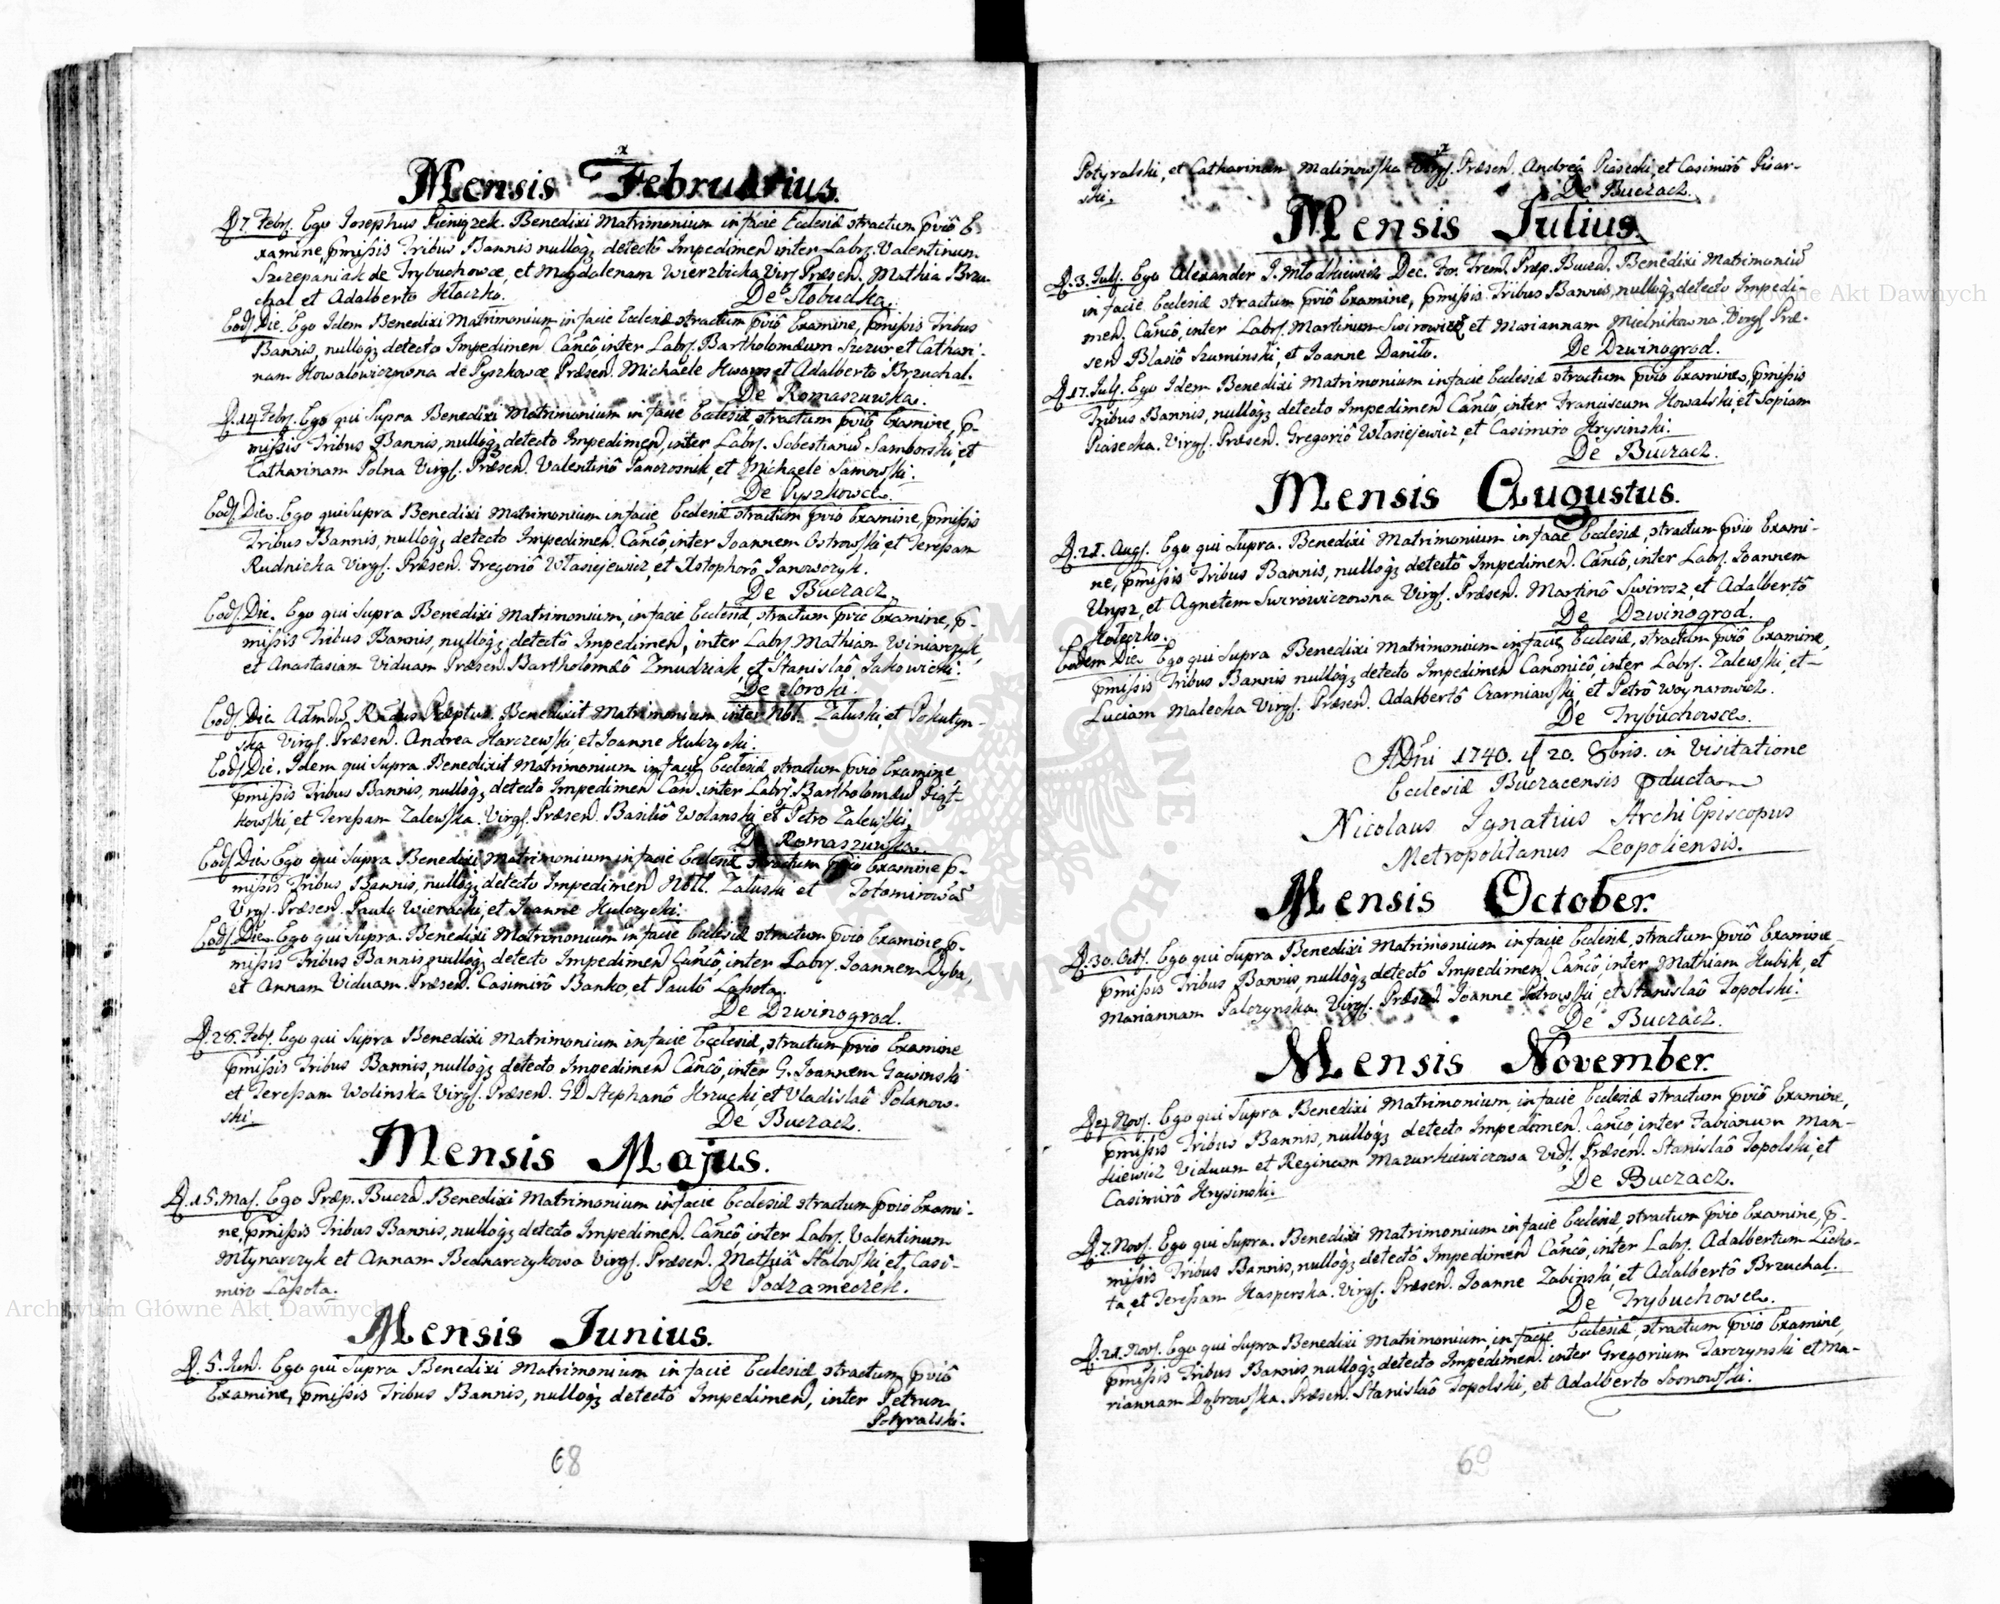 Mensis Februarius.
D. 7. Febr. Ego Josephus Pieniązek. Benedixi Matrimonium in facie Ecclesiæ stractum pvio E
xamine, pmissis Tribus Bannis nulloqz detectô Impedimen inter Labr. Valentinum
Szczepaniak de Trybuchowce, et Magdalenam Wierzbicka Virg. Præsen. Mathia Brzu-
chal et Adalberto Kłaczko. De Slobudka.
Eod. Die. Ego Idem Benedixi Matrimonium in facie Ecclesiæ stractum pviô Examine, pmissis Tribus
Bannis, nulloqz detecto Impedimen Canco, inter Labr. Bartholomæum Szczur et Cathari-
nam Kowalowiczowna de Pyszkowce Præsen. Michaele et Adalberto Brzuchal.
De Romaszuwka.
D. 14. Febr. Ego qui Supra Benedixi Matrimonium in facie Ecclesiæ, stractum pviô Examine, p-
missis Tribus Bannis, nulloqz detecto Impedimen, inter Labr. Sebestianu Samborski, et
Catharinam Polna Virg. Præsen. Valentinô Panczosnik, et Michaele Samowski.
De Pyszkowce.
Eod. Die. Ego qui Supra Benedixi Matrimonium in facie Ecclesiæ stractum pvio Examine, pmissis
Tribus Bannis, nulloqz detecto Impedimen. Cancô, inter Joannem Ostrowski et Teressam
Rudnicka Virg. Præsen. Gregoriô Własiejewicz, et Xstophorô Janowczyk.
De Buczacz.
Eod. Die. Ego qui Supra Benedixi Matrimonium, in facie Ecclesiæ, stractum pvio Examine, p-
missis Tribus Bannis, nulloqz detectô Impedimen, inter Labr. Mathiam Winiarczyk,
et Anastasiam Viduam Præsen. Bartholomæô Zmudziak, et Stanislaô Jakowicki.
De Zoroki.
Eod. Die Admdu Rndus Præptus. Benedixit Matrimonium inter Nbl. Zaluski, et Pokutyn-
ska Virg. Præsen. Andrea Harczewski, et Joanne Kulczycki.
Eod. Die. Idem qui Supra Benedixit Matrimonium in facie Ecclesiæ stractum pvio Examine,
pmissis Tribus Bannis, nulloqz detecto Impedimen Can. inter Labr. Bartholomæu Piąt-
kowski, et Teressam Zalewska. Virg. Præsen. Basiliô Wolanski et Petro Zalewski.
De Romaszuwka.
Eod. Die Ego qui Supra Benedixi Matrimonium in facie Ecclesiæ stractum pvio Examine p-
missis Tribus Bannis, nulloqz detecto Impedimen Nbll. Zaluski et Totomirowa
Virg. Præsen. Paulo Wieracki, et Joanne Kulczycki.
Eod. Die. Ego qui Supra. Benedixi Matrimonium in facie Ecclesiæ stractum pvio Examine, p-
missis Tribus Bannis, nulloqz detecto Impedimen Cancô, inter Labr. Joannem Dyba,
et Annam Viduam. Præsen. Casimirô Banko, et Paulô Lassota.
De Dzwinogrod.
D. 28. Febr. Ego qui Supra Benedixi Matrimonium in facie Ecclesiæ, stractum pvio Examine
pmissis Tribus Bannis, nulloqz detecto Impedimen Cancô, inter G. Joannem Gawinski
et Teressam Wolinska Virg. Præsen. GD Stephanô Krzucki, et Vladislaô Polanow-
ski. De Buczacz.
Mensis Majus.
D. 15. Maj. Ego Præp. Bucza. Benedixi Matrimonium in facie Ecclesiæ stractum pvio Exami-
ne, pmissis Tribus Bannis, nulloqz detecto Impedimen. Cancô, inter Labr. Valentinum
Młynarczyk et Annam Bednarczykowa Virg. Præsen. Mathiâ Stalowski, et Casi-
miro Lassota. De Podzameczek.
Mensis Junius.
D. 5. Jun. Ego qui Supra Benedixi Matrimonium in facie Ecclesiæ stractum pviô
Examine, pmissis Tribus Bannis, nulloqz detectô Impedimen, inter Petrum
Potyralski.
68
Potyralski, et Catharinam Malinowska Virg. Præsen. Andreâ Piasecki, et Casimirô Pisar-
ski. De Buczacz.
Mensis Julius.
D. 3. Julj. Ego Alexander J. Młodkiewicz Dec. For. Trem. Præp. Bucza. Benedixi Matrimoniu
in facie Ecclesiæ stractum pviô Examine, pmissis Tribus Bannis, nulloqz detecto Impedi-
men. Cancô, inter Labr. Martinum Swirowicz et Mariannam Mielnikowna Virg. Præ-
sen Blasiô Szuminski, et Joanne Daniło. De Dzwinogrod.
D. 17. Julj. Ego Idem Benedixi Matrimonium in facie Ecclesiæ stractum pvio Examine, pmissis
Tribus Bannis, nulloqz detecto Impedimen Cancô, inter Franciscum Kowalski, et Sopiam
Piasecka. Virg. Præsen. Gregoriô Własiejewicz, et Casimiro Krysinski.
De Buczacz.
Mensis Augustus.
D. 21. Aug. Ego qui Supra. Benedixi Matrimonium in facie Ecclesiæ, stractum pvio Exami-
ne, pmissis Tribus Bannis, nulloqz detectô Impedimen. Cancô, inter Labr. Joannem
Urysz, et Agnetem Swirowiczowna Virg. Præsen. Martinô Swirosz, et Adalbertô
Kołeczko. De Dzwinogrod.
Eodem Die Ego qui Supra Benedixi Matrimonium in facie Ecclesiæ, stractum pviô Examine,
pmissis Tribus Bannis nulloqz detecto Impedimen Canonicô, inter Labr. Zalewski, et
Luciam Malecka Virg. Præsen. Adalbertô Czarniawski, et Petrô Woynarowicz.
De Trybuchowce.
ADni 1740. d 20. 8bris. in Visitatione
Ecclesiæ Buczacensis pducta
Nicolaus Ignatius ArchiEpiscopus
Metropolitanus Leopoliensis.
Mensis October.
D. 30. Oct. Ego qui Supra Benedixi Matrimonium in facie Ecclesiæ, stractum pviô Examine
pmissis Tribus Bannis, nulloqz detectô Impedimen Cancô, inter Mathiam Kubik, et
Mariannam Palczynska Virg. Præsen Joanne Petrowski et Stanislaô Topolski.
De Buczacz.
Mensis November.
Nov. Ego qui Supra Benedixi Matrimonium, in facie Ecclesiæ stractum pviô Examine,
pmissis Tribus Bannis, nulloqz detecto Impedimen. Canco, inter Fabianum Man-
kiewicz Viduum et Reginam Mazurkiewiczowa Vid. Præsen. Stanislaô Topolski, et
Casimirô Krysinski. De Buczacz.
D. 7. Nov. Ego qui Supra. Benedixi Matrimonium in facie Ecclesiæ, stractum pvio Examine, p-
missis Tribus Bannis, nulloqz detectô Impedimen Cancô, inter Labr. Adalbertum Licho-
ta, et Teressam Kasperska. Virg. Præsen. Joanne Zabinski, et Adalbertô Brzuchal.
De Trybuchowce.
D. 21. Nov. Ego qui Supra Benedixi Matrimonium, in facie Ecclesiæ, stractum pvio Examine,
pmissis Tribus Bannis, nulloqz detecto Impedimen. inter Gregorium Tarczynski et Ma-
riannam Dąbrowska. Præsen. Stanislaô Topolski, et Adalberto Sosnowski.
69
Archiwum Główne Akt Dawnych
Archiwum Główne Akt Dawnych